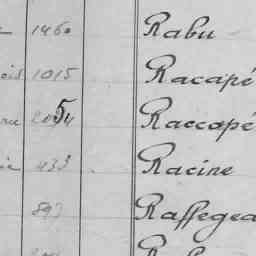 1460 Rabu
1015 Racapé
Raccapé
433 Racine
893 Raffegea